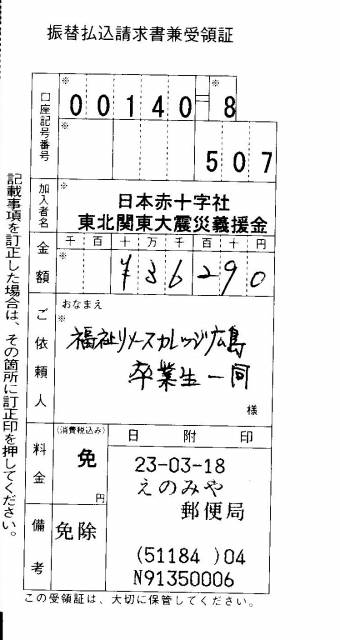 振替払込請求書兼受領証
口座記号番号
※ 00140-8
※ 507
加入者名
※ 日本赤十字社
東北関東大震災義援金
金額
千百十万千百十円
※ ¥36290
ご依頼人
おなまえ
※
福祉リソースカレッジ広島
卒業生一同
様
料金
(消費税込み)
免
円
日附印
23-03-18
えのみや
郵便局
(51184 )04
N91350006
備考
免除
この受領証は、大切に保管してください。
記載事項を訂正した場合は、その箇所に訂正印を押してください。